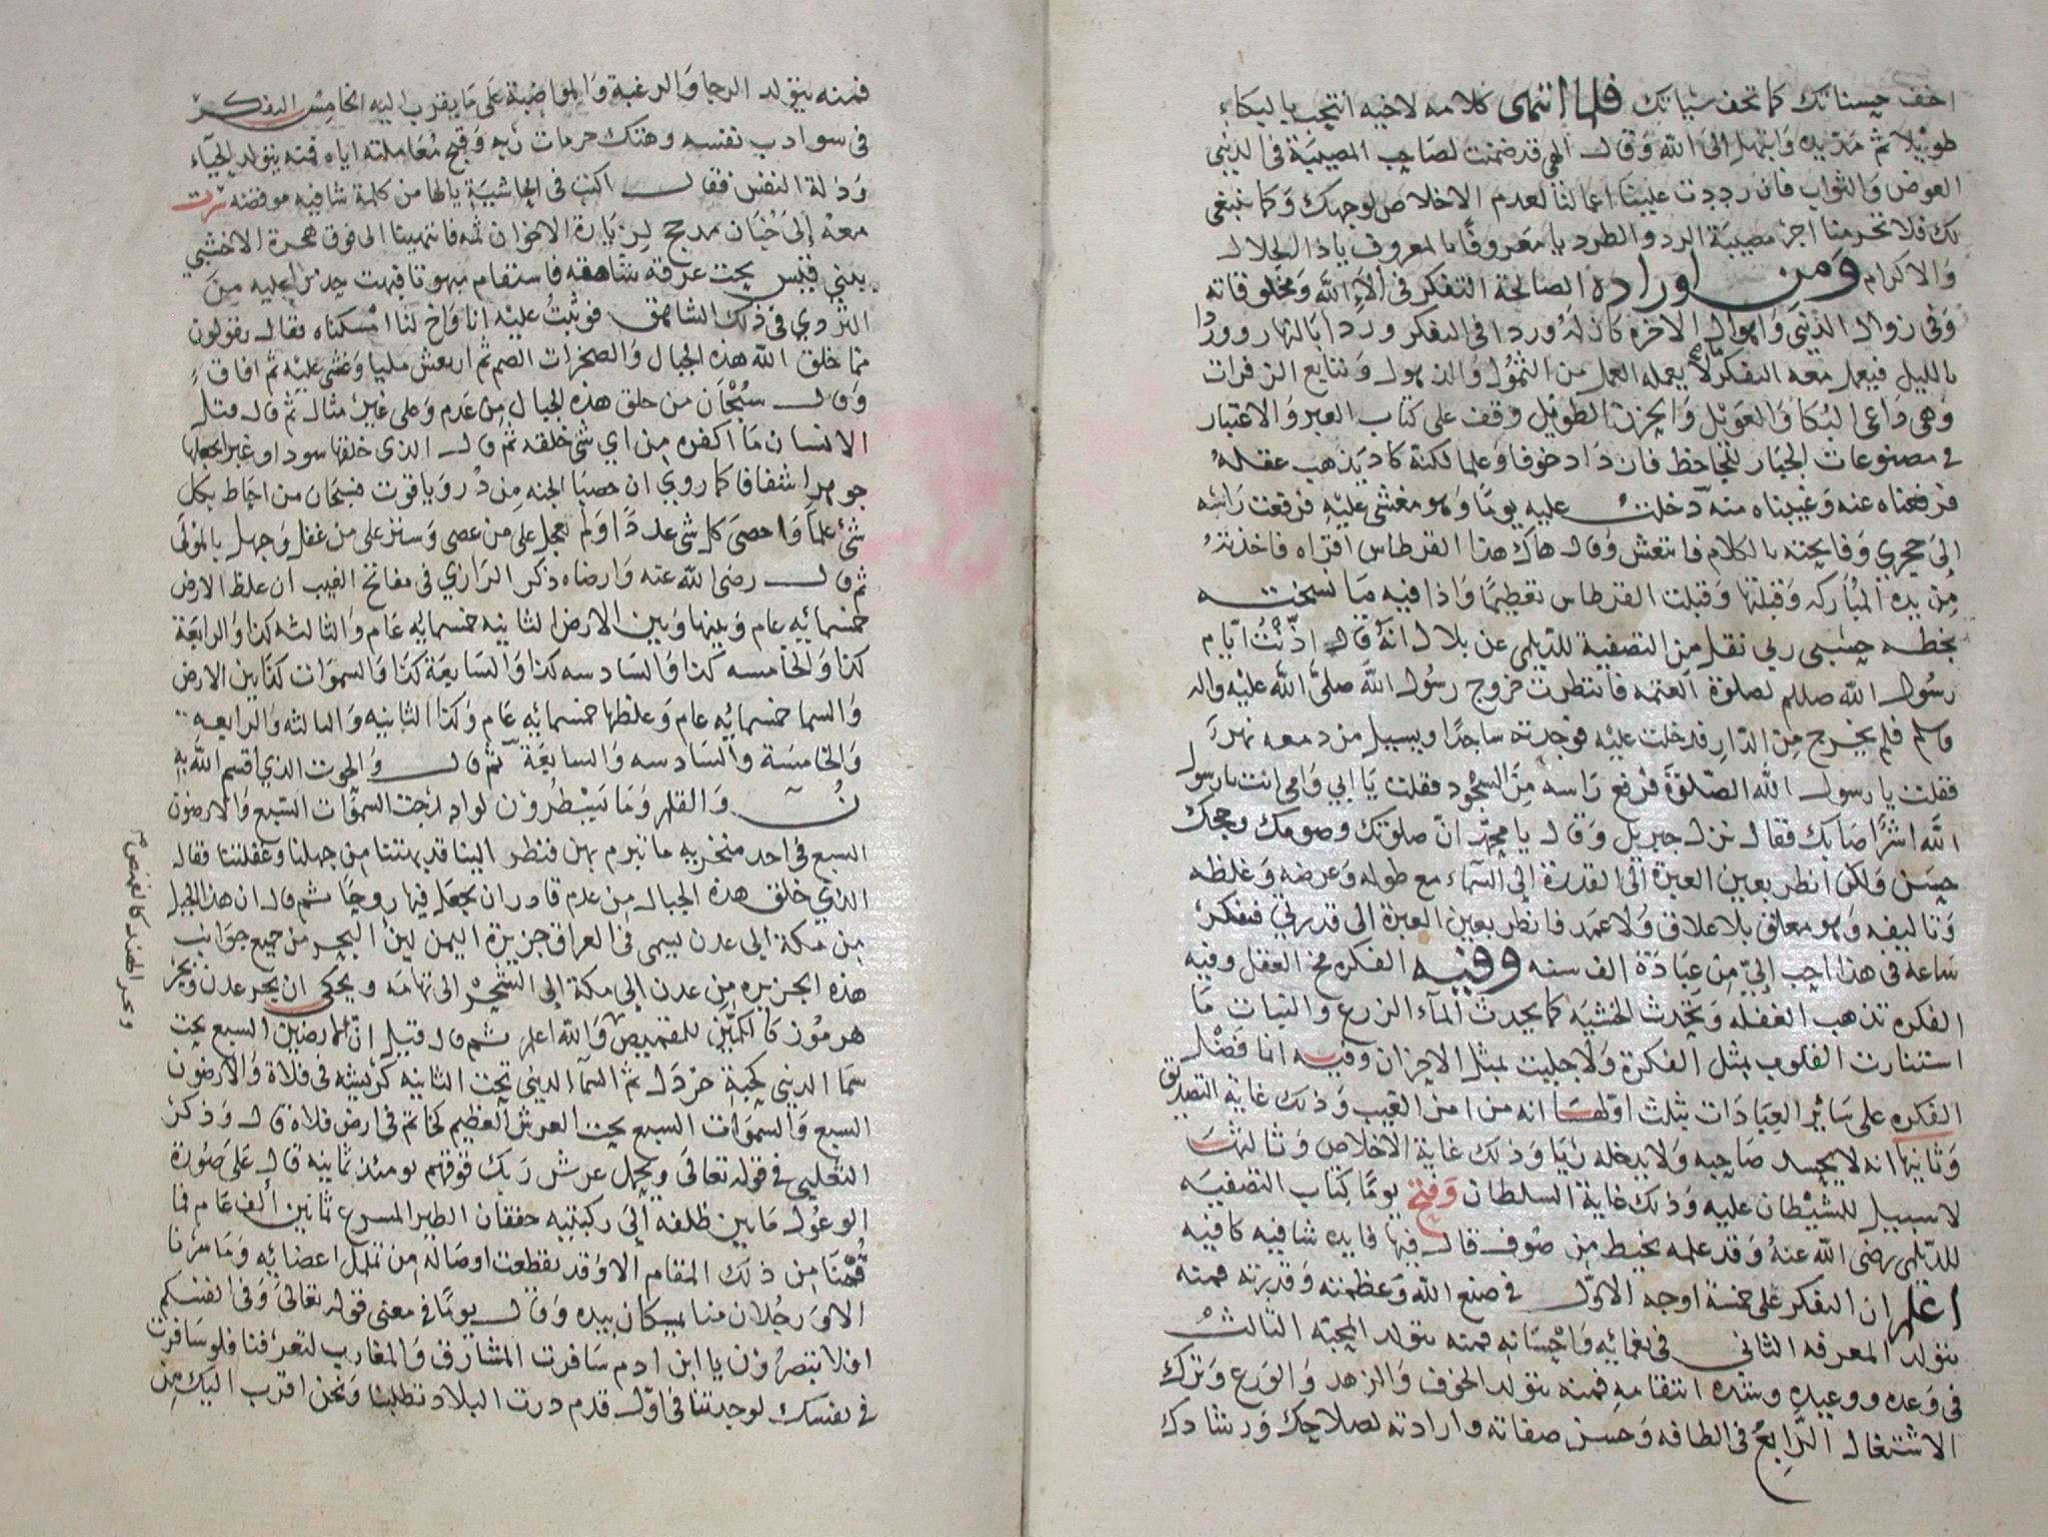 اخف حسناتك كما تخف سياتك فلما انتهى كلامه لاخيه انتحب بالبكاء
طويلا ثم مد يده وابتهل الى الله وقال الهي قد ضمنت لصاحب المصيبة في الدنيى
العوض والثواب فان رددت علينا اعمالنا لعدم الاخلاص لوجهك وكما ينبغي
لك فلا تحرمنا اجر مصيبة الرد والطرد يا معروفا بالمعروف يا ذا الجلال
والاكرام ومن اوراده الصالحة التفكر في الآء الله ومخلوقاته
وفي زوال الدنيى واهوال الاخره كان له وردا في التفكر وردا بالنهار ووردا
بالليل فيعمل معه التفكر ما لا يعمله العمل من النحول والذهول وتتابع الزفرات
وهي داعي البكا والعويل والحزن الطويل وقف على كتاب العبر والاعتبار
في مصنوعات الجبار للجاحظ فازداد خوفا وعلما لكنه كاد يذهب عقله
فرفعناه عنه وغيبناه منه دخلت عليه يوما وهو مغشي عليه فرفعت راسه
الى حجري وفاتحته بالكلام فانتعش وقال هاك هذا القرطاس اقراه فاخذته
من يده المباركه وقبلتها وقبلت القرطاس تعظيما واذا فيه ما نسخته
بخطه حسبي ربي نقل من التصفية للديلمي عن بلال انه قال اذنت ايام
رسول الله صللم لصلوة العتمه فانتظرت خروج رسول الله صلى الله عليه واله
وسلم فلم يخرج من الدار فدخلت عليه فوجدته ساجدا ويسيل من دمعه نهرء
فقلت يا رسول الله الصلوة فرفع راسه من السجود فقلت يا ابي وامي انت يا رسول
الله اشرا صابك فقال نزل جبريل وقال يا محمد ان صلوتك وصومك وحجك
حسن ولكن انظر بعين العبرة الى القدرة الى السماء مع طوله وعرضه وغلظه
وتاليفه وهو معلق بلا علاق ولا عمد فانظر بعين العبرة الى قدرتي فتفكر
ساعة في هذا احب الي من عبادة الف سنه وفيه الفكره مخ العقل وفيه
الفكره تذهب الغفله وتحدث الخشيه كما يحدث المآء الزرع والنبات ما
استنارت القلوب بمثل الفكرة ولا جليت بمثل الاحزان وفيه انما فضل
الفكره على سائر العبادات بثلث اولها انه من امن الغيب وذلك غاية التصديق
وثانيها انه لا يحسد صاحبه ولا يدخله ريا وذلك غاية الاخلاص وثالثها
لا سبيل للشيطان عليه وذلك غاية السلطان وفتح يوما كتاب التصفيه
للديلمي رضى الله عنه وقد علمه بخيط من صوف قال فيها فايده شافيه كافيه
اعلم ان التفكر على خمسة اوجه الاول في صنع الله وعظمته وقدرته فمنه
يتولد المعرفه الثاني في نعمائه واحسانه فمنه يتولد المحبة الثالث
في وعده ووعيده وشده انتقامه فمنه يتولد الخوف والزهد والورع وترك
الاشتغال الرابع في الطافه وحسن صفاته وارادته لصلاحك ورشادك
فمنه يتولد الرجا والرغبة والمواضبة على ما يقرب اليه الخامس التفكر
في سو ادب نفسه وهتك حرمات ربه وقبح معاملته اياه فمنه يتولد الحياء
وذلة النفس فقال اكتب في الحاشية يا لها من كلمة شافيه موقضه سرت
معه إلى خبان مدحج لزيارة الاخوان ثمه فانتهينا الى فوق هجرة الاخشبي
يعني قبس تحت عرقه شاهقه فاستقام مبهوتا فبهت حذرا عليه من
التردي في ذلك الشاهق فوثبت عليه انا واخ لنا امسكناه فقال يقولون
مما خلق الله هذه الجبال والصخرات الصم ثم ارتعش مليا وغشي عليه ثم افاق
وقال سبحان من خلق هذه الجبال من عدم وعلى غير مثال ثم قال قتل
الانسان ما اكفره من اي شي خلقه ثم قال الذي خلقها سودا وغبرا يجعلها
جوهرا شفافا كما روي ان حصبا الجنه من در وياقوت فسبحان من احاط بكل
شئ علما واحصى كل شي عددا ولم يعجل على من عصى وستر على من غفل وجهل بالمولى
ثم قال رضى الله عنه وارضاه ذكر الرازي في مفاتح الغيب ان غلظ الارض
خمسمائه عام وبينها وبين الارض الثانيه خمسمايه عام والثالثه كذا والرابعة
كذا والخامسه كذا والسادسه كذا والسابعة كذا والسموات كذا بين الارض
والسما خمسمائه عام وغلظها خمسمائه عام وكذا الثانيه والثالثه والرابعه
والخامسة والسادسه والسابعة ثم قال والحوت الذي اقسم الله به
ن والقلم وما يسطرون لو ادرجت السموات السبع والارضون
السبع في احد منخريه ما تبرم بهن فنظر الينا قد بهتنا من جهلنا وغفلتنا فقال
الذي خلق هذه الجبال من عدم قادر ان يجعل فيها روحا ثم قال ان هذا الجبل
من مكة الى عدن يسمى في العراق جزيرة اليمن لين البحر من جميع جوانب
هذه الجزيره من عدن إلى مكة إلى الشحر الى تهامه ويحكى ان بحر عدن وبحر
هرموز كالكمين للقميص والله اعلم ثم قال قيل ان الارضين السبع تحت
سما الدنيى كحبة خردل ثم السمآ الدنيى تحت الثانيه كريشه في فلاة والارضون
السبع والسموات السبع تحت العرش العظيم كخاتم في ارض فلاة قال وذكر
الثعلبي في قوله تعالى ويحمل عرش ربك فوقهم يومئذ ثمانيه قال على صورة
الوعول ما بين ظلفه الى ركبتيه خفقان الطير المسرع ثمانين الف عام فما
قمنا من ذلك المقام الا وقد تقطعت اوصاله من تململ اعضائه وما سرنا
الا ورجلان منا يمسكان بيده وقال يوما في معنى قوله تعالى وفي انفسكم
افلا تبصرون يا ابن ادم سافرت المشارق والمغارب لتعرفنا فلو سافرت
في نفسك لوجدتنا في اول قدم درت البلاد تطلبنا ونحن اقرب اليك من
وبحر الهند كالقميص